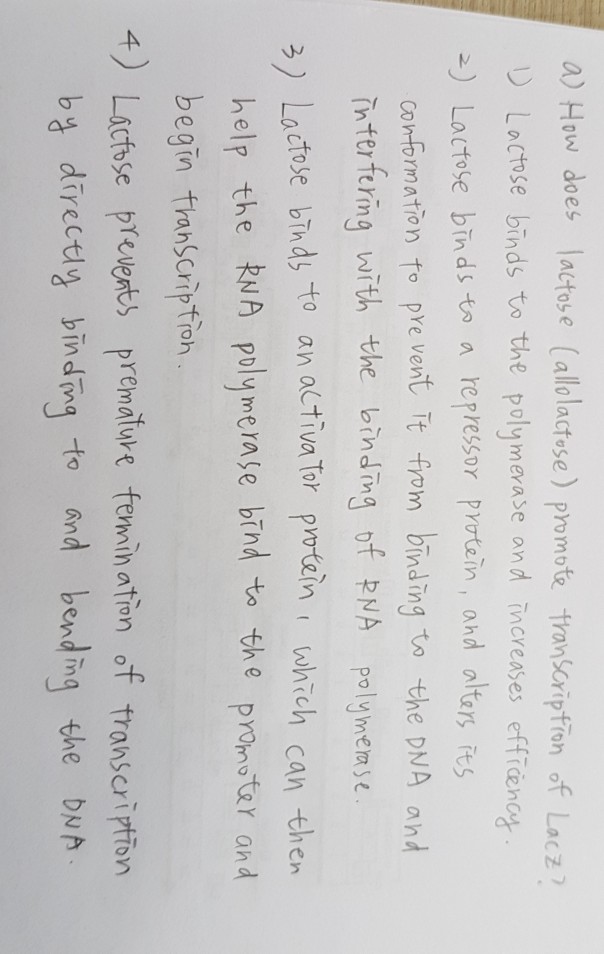 a) How does lactose (allolactose) promote transcription of LacZ?
1) Lactose binds to the polymerase and increases efficency.
2) Lactose binds to a repressor protein, and alters its
conformation to prevent it from binding to the DNA and
interfering with the binding of RNA polymerase.
3) Lactose binds to an activator protein, which can then
help the RNA polymerase bind to the promoter and
begin transcription.
4) Lactose prevents premature termination of transcription
by directly binding to and bending the DNA.